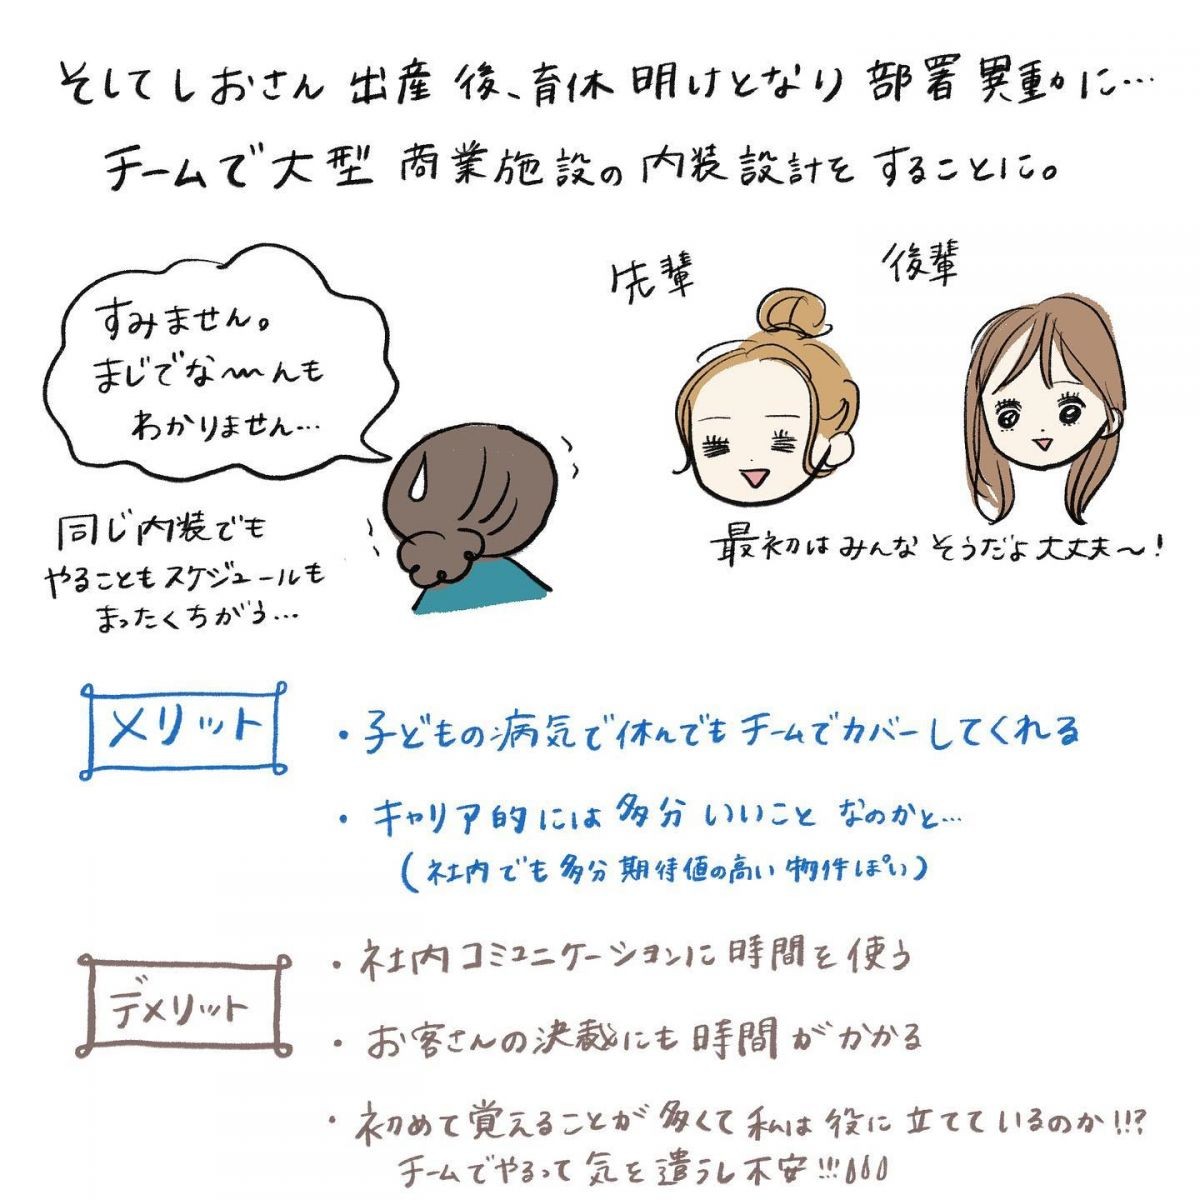 そしてしおさん出産後、育休明けとなり部署異動に…
チームで大型商業施設の内装設計をすることに。
すみません。
まじでな〜んも
わかりません…
同じ内装でも
やることもスケジュールも
まったくちがう…
先輩
後輩
最初はみんなそうだよ大丈夫〜！
メリット
・子どもの病気で休んでもチームでカバーしてくれる
・キャリア的には多分いいことなのかと…
(社内でも多分期待値の高い物件ぽい)
デメリット
・社内コミュニケーションに時間を使う
・お客さんの決裁にも時間がかかる
・初めて覚えることが多くて私は役に立てているのか!!?
チームでやるって気を遣うし不安!!!